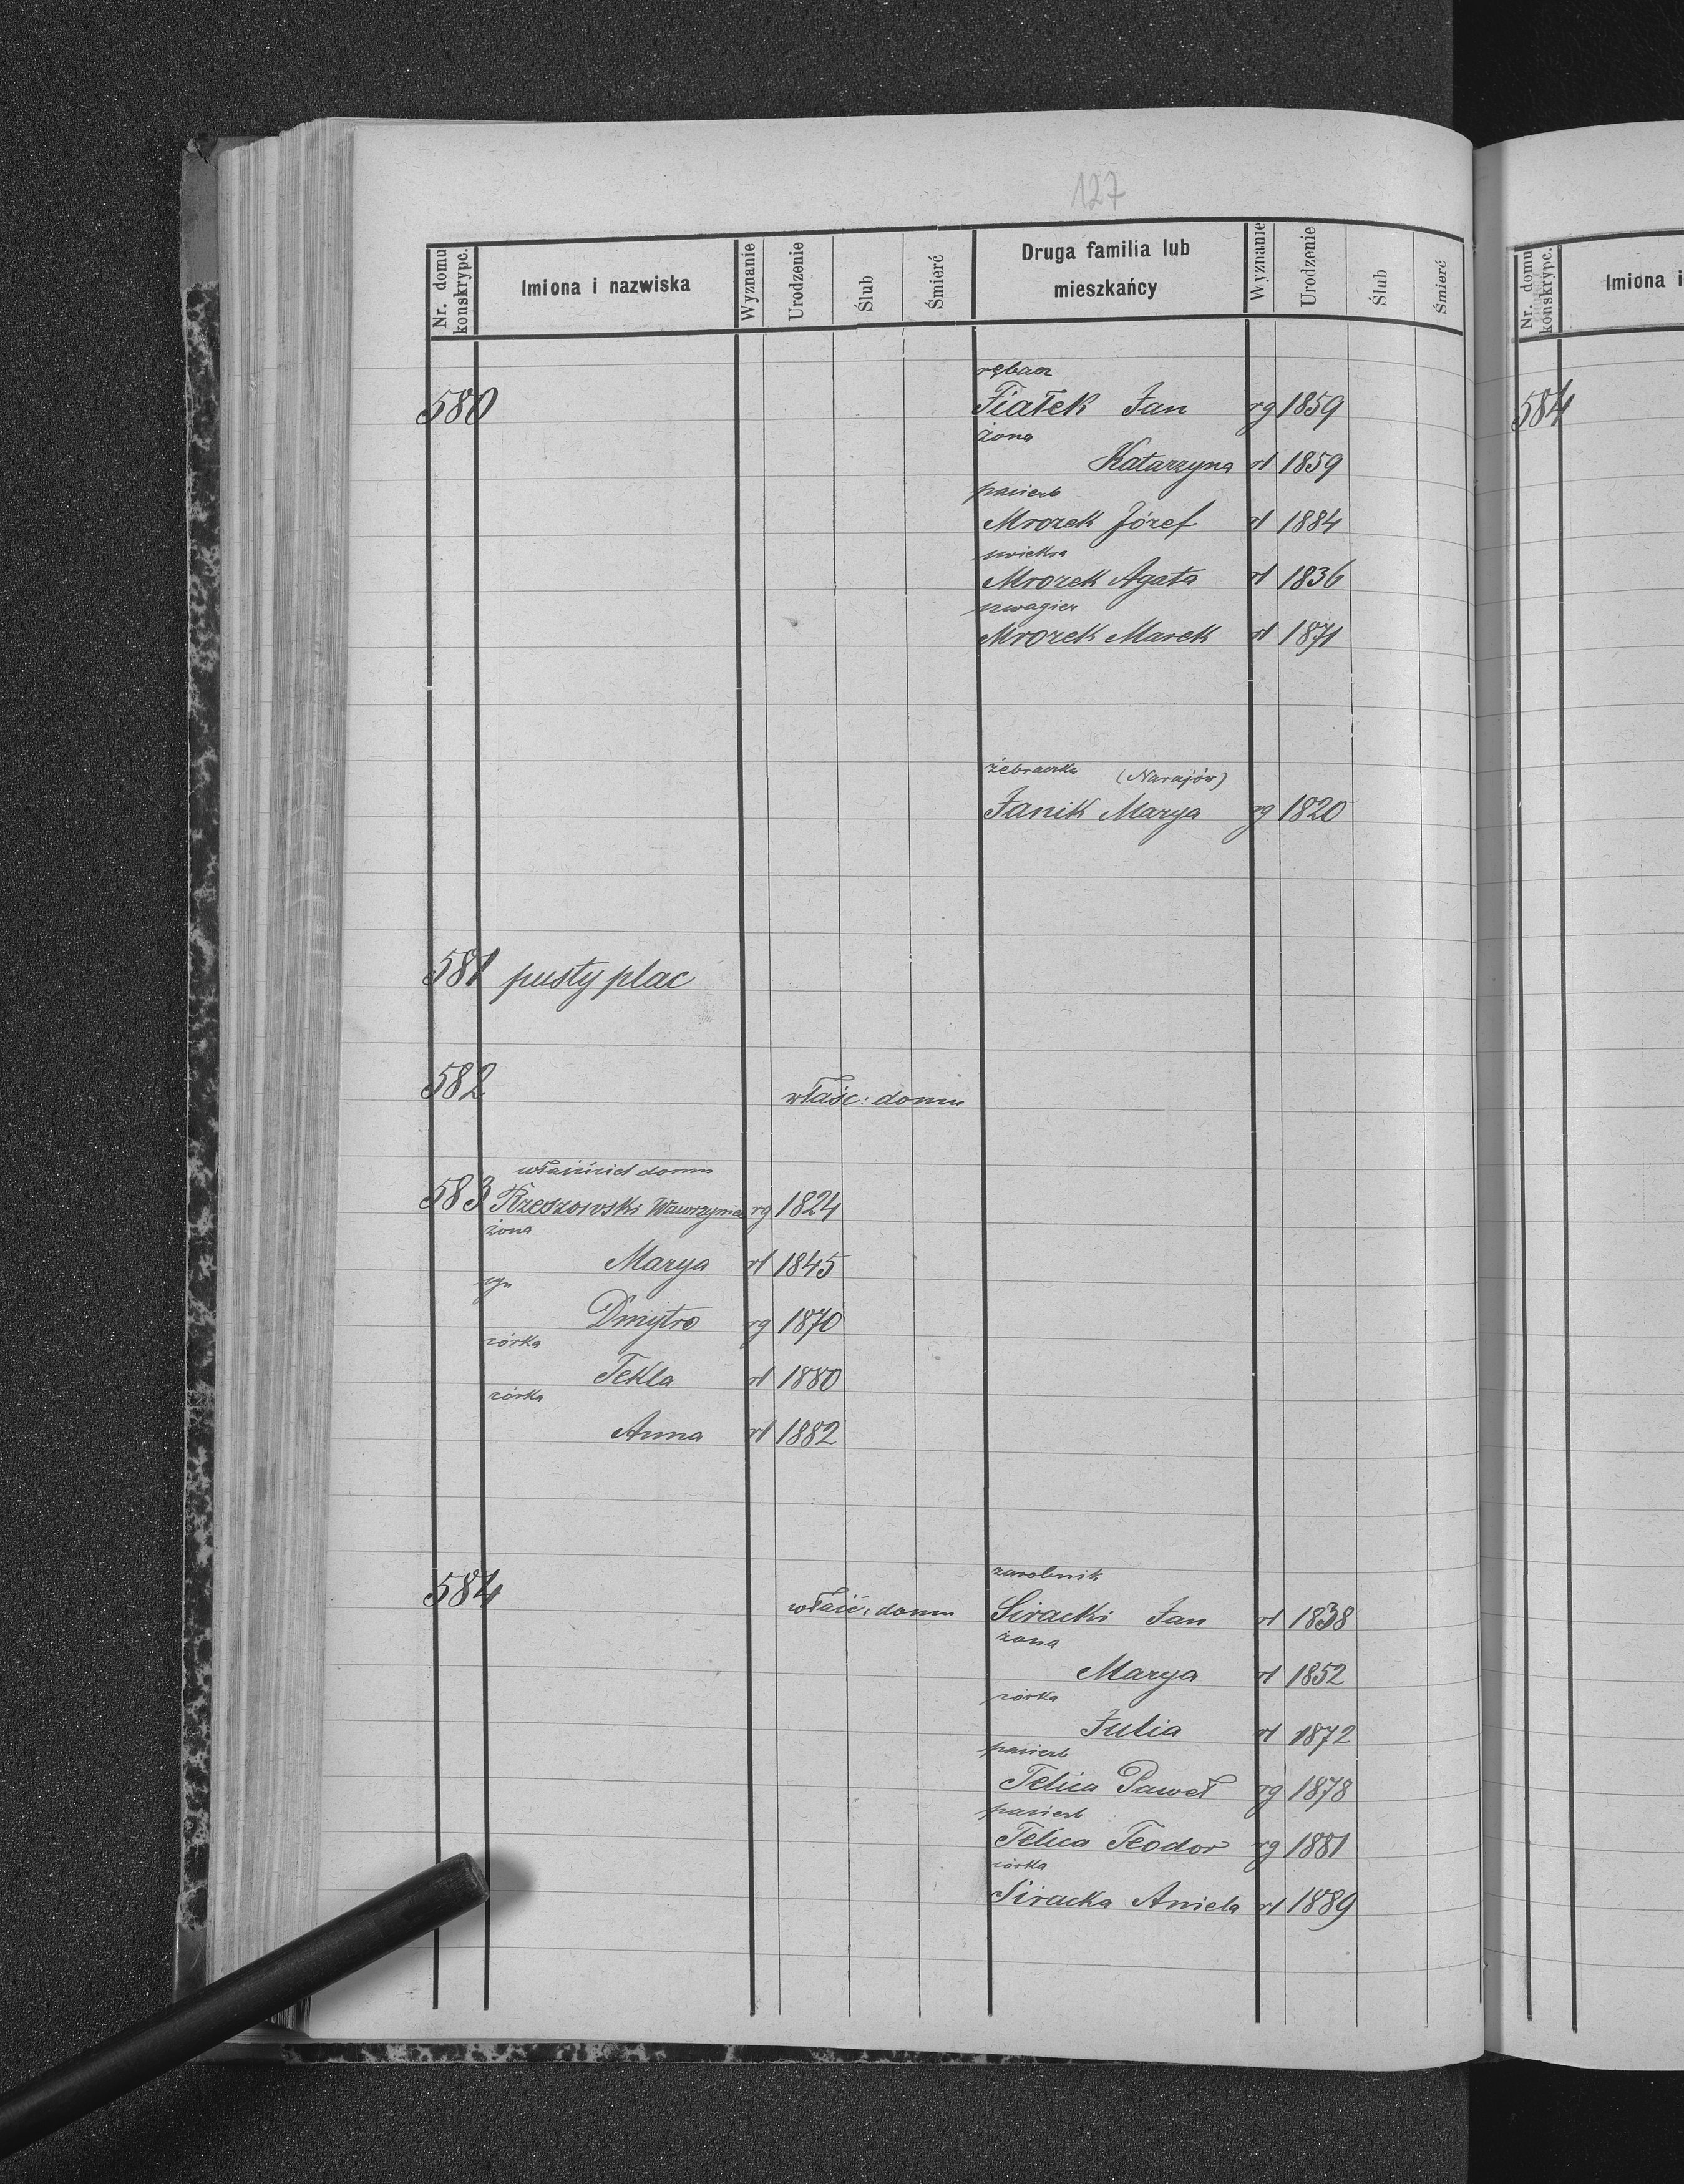 127
Nr. domu konskrypc.
Imiona i nazwiska
Wyznanie
Urodzenie
Ślub
Śmierć
Druga familia lub
mieszkańcy
Wyznanie
Urodzenie
Ślub
Śmierć
Nr. domu konskrypc.
Imiona i
rębacz
580 Fiałek Jan rg 1859
584
żona
Katarzyna rł 1859
pasierb
Mrozek Józef rł 1884
Mrozek Agata rł 1836
szwagier
Mrozek Marek rł 1871
żebraczka (Narajów)
Janik Marya rg 1820
581 pusty plac
582 właśc: domu
właściciel domu
583 Rzeszowski Wawrzyniec rg 1824
żona
Marya rł 1845
syn
Dmytro rg 1870
córka
Tekla rł 1880
córka
Anna rł 1882
zarobnik
584 właśc: domu Siracki Jan rł 1838
żona
Marya rł 1852
córka
Julia rł 1872
pasierb
Telica Paweł rg 1878
pasierb
Telica Teodor rg 1881
córka
Siracka Aniela rł 1889